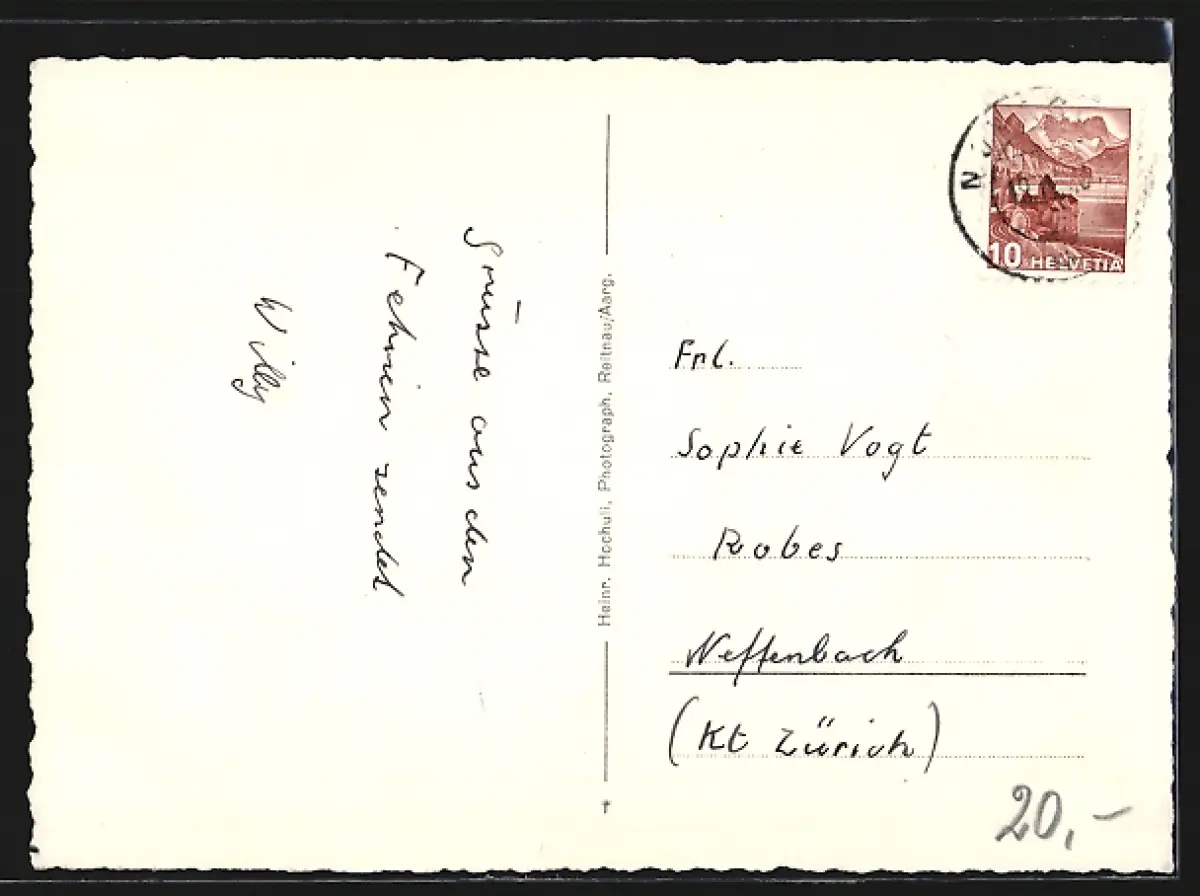 Grüsse aus den
Fehrien sendet
Willy
Heinr. Hochuli, Photograph, Reitnau/Aarg.
N
10 HELVETIA
Frl.
Sophie Vogt
Robes
Neffenbach
(Kt Zürich)
20,-